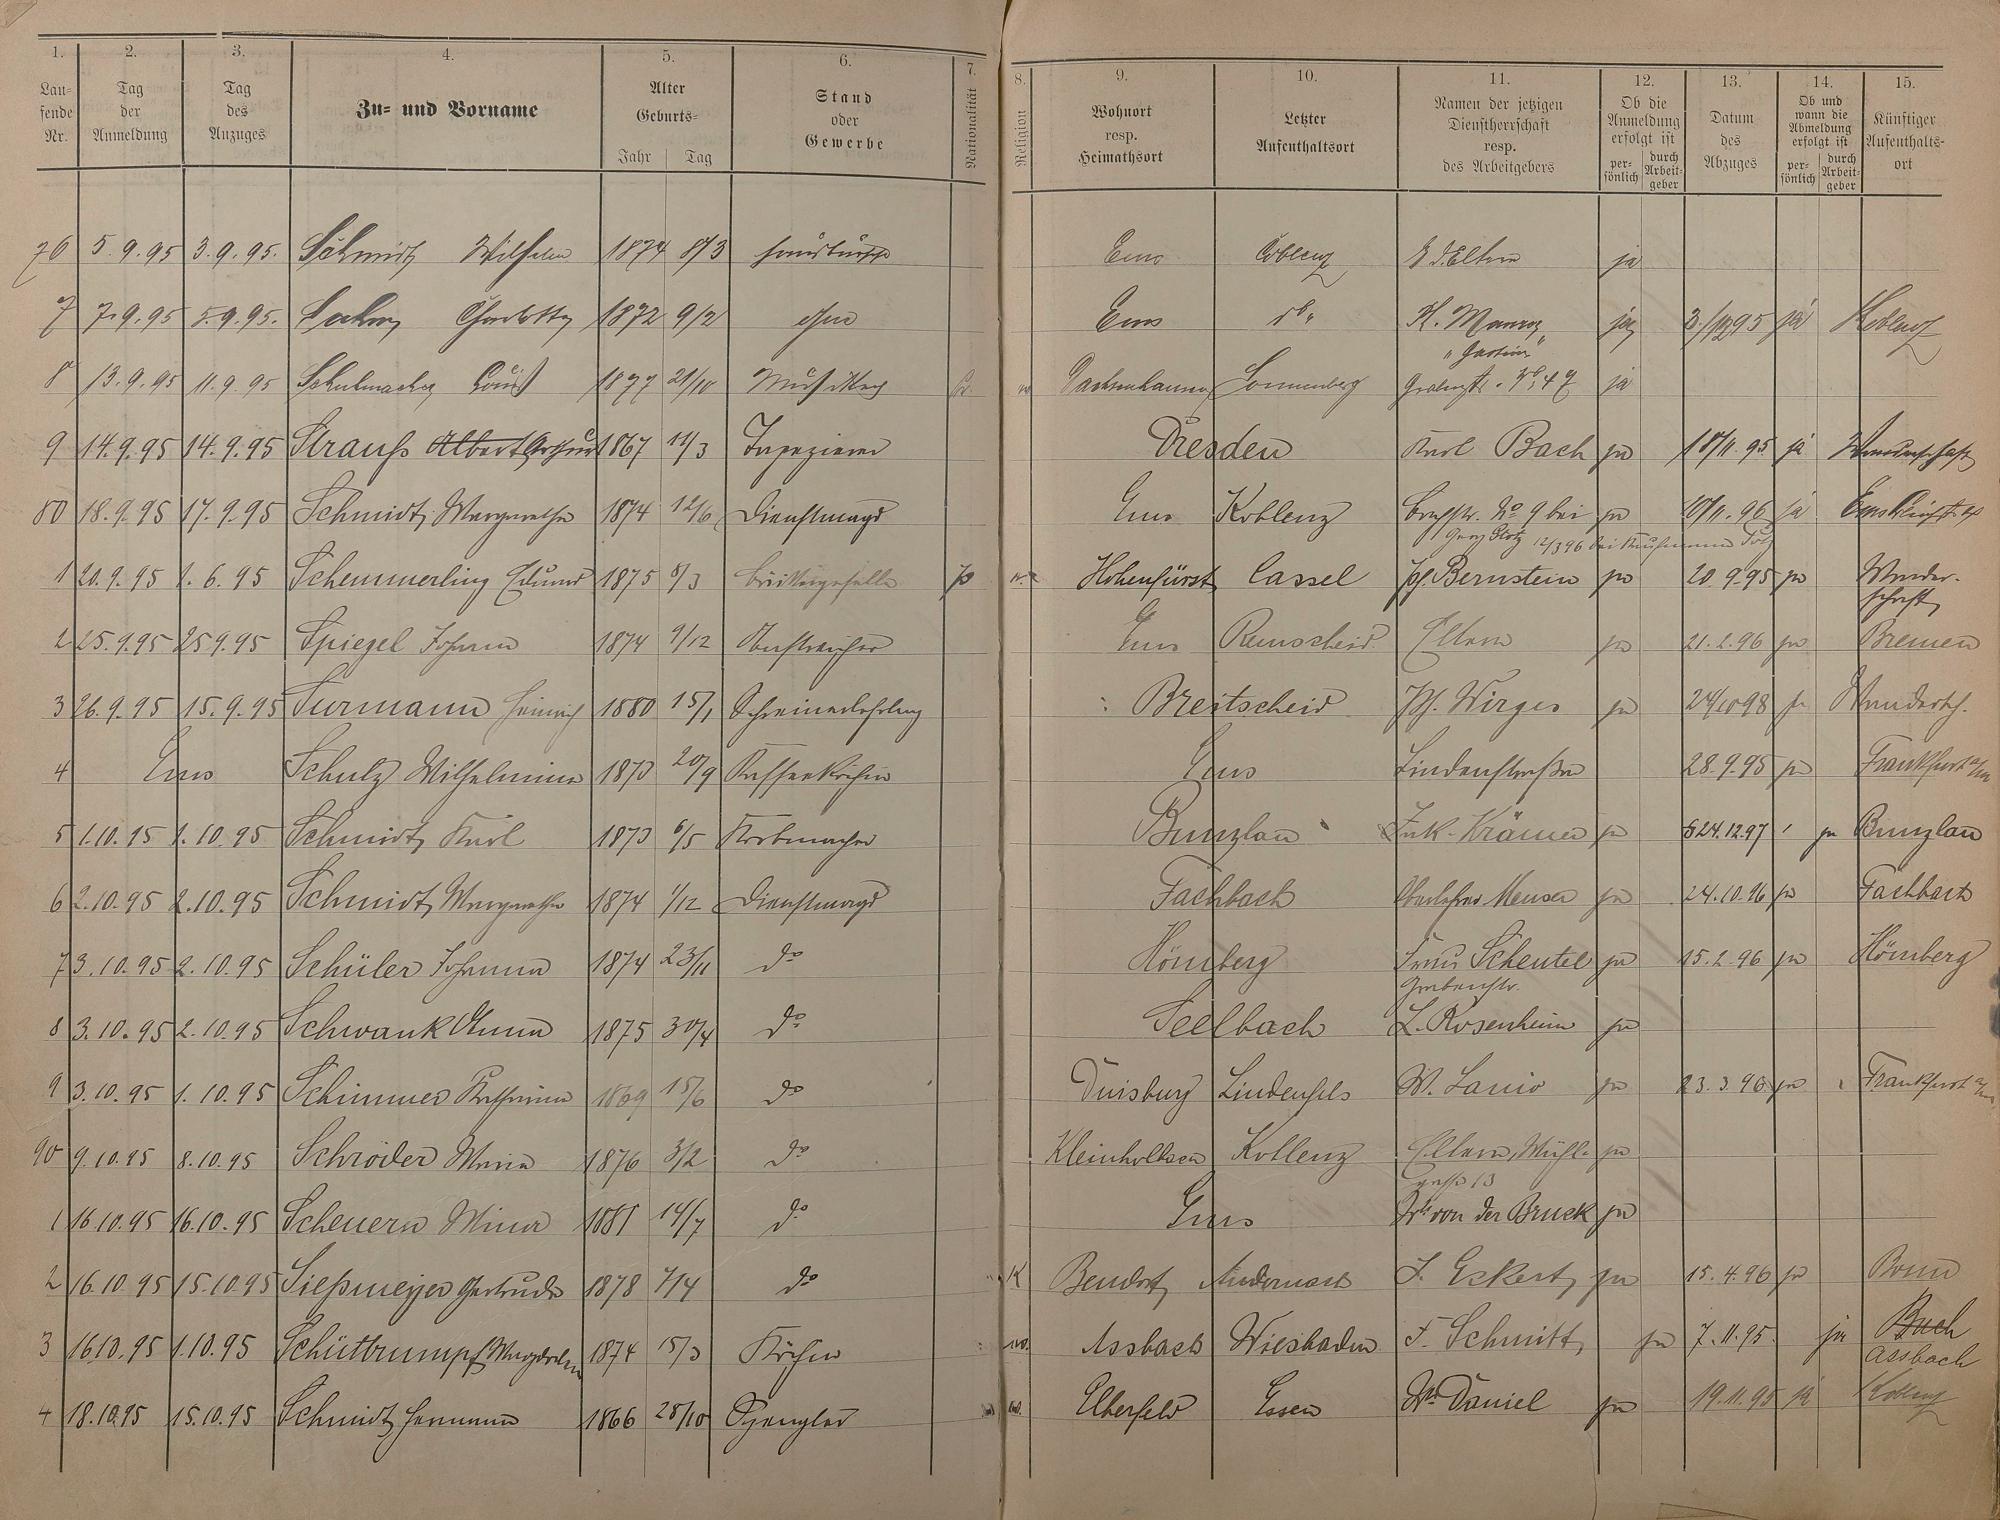 1. 2. 3. 4. 5. 6. 7. 8. 9. 10. 11. 12. 13. 14. 15.
Lau-
fende
Nr.
Tag
der
Anmeldung
Tag
des
Anzuges
Zu- und Vorname
Alter
Geburts-
Jahr Tag
Stand
oder
Gewerbe
Nationalität
Religion
Wohnort
resp.
Heimathsort
Letzter
Aufenthaltsort
Namen der jetzigen
Dienstherrschaft
resp.
des Arbeitgebers
Ob die
Anmeldung
erfolgt ist
per-
sönlich
durch
Arbeit-
geber
Datum
des
Abzuges
Ob und
wann die
Abmeldung
erfolgt ist
per-
sönlich
durch
Arbeit-
geber
Künftiger
Aufenthalts-
ort
76 5.9.95 3.9.95. Schmidt Wilhelm 1874 8/3 Hausbursche Ems Coblenz Eltern ja
7 7.9.95 5.9.95. Charlotte 1872 9/2 ohne Ems do ja 95 ja Koblenz
8 13.9.95 11.9.95 Schuhmacher Louis 1877 21/10 Musiker Dachsenhausen Sonnenberg Grabenstr. No 47 ja
9 14.9.95 14.9.95 Strauss Albert Arthur 1867 11/3 Tapezierer Dresden Karl Bach ja 18/11.95 ja Wanderschaft
80 18.9.95 17.9.95 Schmidt Margarethe 1874 12/6 Dienstmagd Ems Koblenz No 9 bei ja 10/11.96 ja Ems
12/3 96 bei Kaufmann
1 20.9.95 1.6.95 Schemmerling Eduard 1875 8/3 Hohenfürst Cassel Jos. Bernstein ja 20.9.95 ja Wander-
schaft
2 25.9.95 25.9.95 Spiegel Johann 1874 9/12 Anstreicher Ems Remscheid Eltern ja 21.2.96 ja Bremen
3 26.9.95 15.9.95 Surmann Heinrich 1880 15/1 Schreinerlehrling Breitscheid Jos. Wirges ja 24/10 98 ja Wandersch.
4 Ems Schulz Wilhelmina 1873 20/9 Kaffeeköchin Ems Lindenstraße 28.9.95 ja Frankfurt a/M
5 1.10.95 1.10.95 Schmidt Karl 1873 6/5 Korbmacher Bunzlau Krämer ja 24.12.97 ja Bunzlau
6 2.10.95 2.10.95 Schmidt Margarethe 1874 1/12 Dienstmagd Fachbach Oberlehrer Meuser ja 24.10.96 ja Fachbach
7 3.10.95 2.10.95 Schüler Johanna 1874 23/11 do Hömberg Frau Scheutel ja 15.2.96 ja Hömberg
Grabenstr.
8 3.10.95 2.10.95 Schwank Anna 1875 30/4 do Seelbach L. Rosenheim ja
9 3.10.95 1.10.95 Schimmer Katharina 1869 15/6 do Duisburg Lindenfels W. Lanio ja 23.3.96 ja Frankfurt a/M
90 9.10.95 8.10.95 Schröder Maria 1876 3/2 do Koblenz Eltern, Mühl- ja
gasse 13
1 16.10.95 16.10.95 Scheuern Mina 1881 14/7 do Ems von der Bruck ja
2 16.10.95 15.10.95 Sießmeyer Gertrude 1878 7/4 do K Bendorf Andernach J. Eckert ja 15.4.96 ja Bonn
3 16.10.95 1.10.95 Schüttrumpf Magdalena 1874 15/3 Köchin Assbach Wiesbaden F. Schmitt ja 7.11.95 ja Buch
Assbach
4 18.10.95 15.10.95 Schmidt Hermann 1866 28/10 Spengler Elberfeld Essen Daniel ja 19.11.95 ja Koblenz